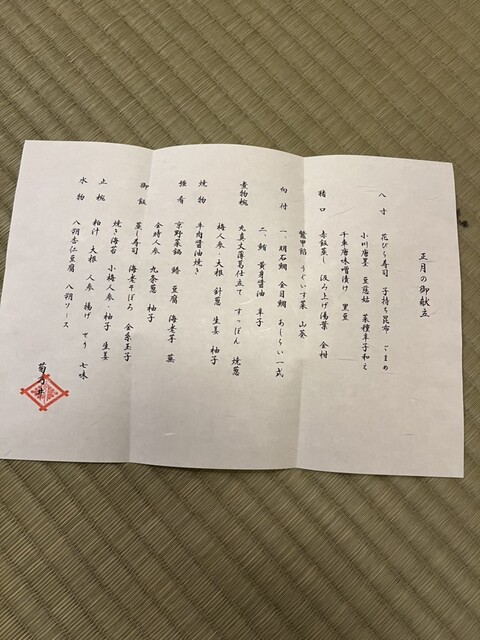 正月の御献立
八寸 花びら寿司 子持ち昆布 ごまめ
小川唐墨 豆慈姑 菜種辛子和え
千車唐味噌漬け 黒豆
猪口 赤飯蒸し 汲み上げ湯葉 金柑
鼈甲餡 うぐいす菜 山葵
向付 一、明石鯛 金目鯛 あしらい一式
二、鮪 黄身醤油 辛子
煮物椀 丸真丈薄葛仕立て すっぽん 焼葱
梅人参・大根 針葱 生姜 柚子
焼物 牛肉醤油焼き
強肴 京野菜鍋 鰆 豆腐 海老芋 蕪
金時人参 九条葱 柚子
御飯 蒸し寿司 海老そぼろ 金糸玉子
焼き海苔 小梅人参・柚子 生姜
止椀 粕汁 大根 人参 揚げ せり 七味
水物 八朔杏仁豆腐 八朔ソース
菊乃井